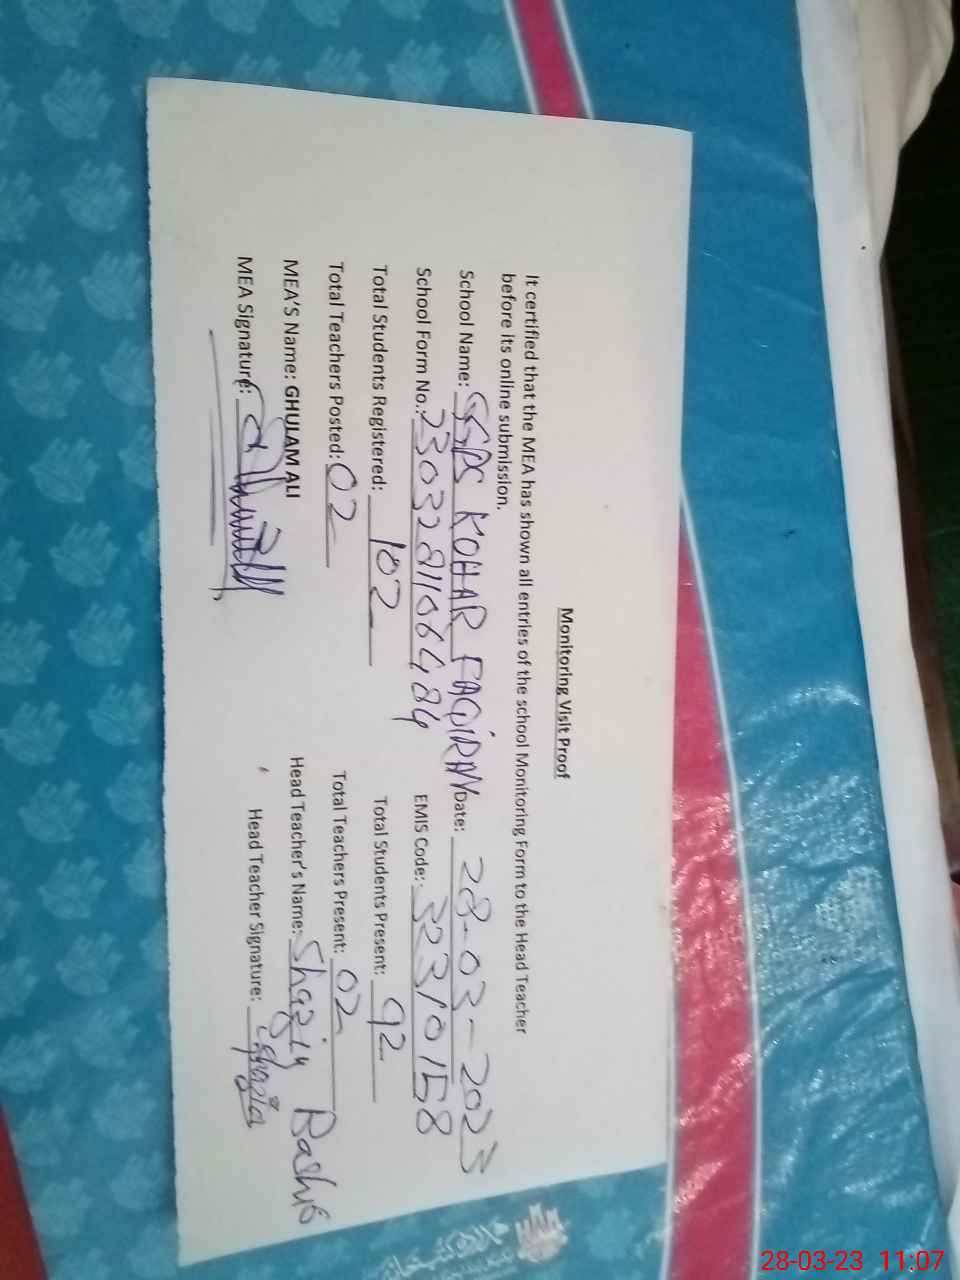 Monitoring Visit Proof
It certified that the MEA has shown all entries of the school Monitoring Form to the Head Teacher
before its online submission.
School Name: GGPS KOHAR FAQIRAN Date: 28-03-2023
School Form No.: 2303281106484 EMIS Code: 32310158
Total Students Registered: 102 Total Students Present: 92
Total Teachers Posted: 02 Total Teachers Present: 02
MEA'S Name: GHULAM ALI Head Teacher's Name: Shazia Bashir
MEA Signature: Head Teacher Signature: Shazia
28-03-23 11:07